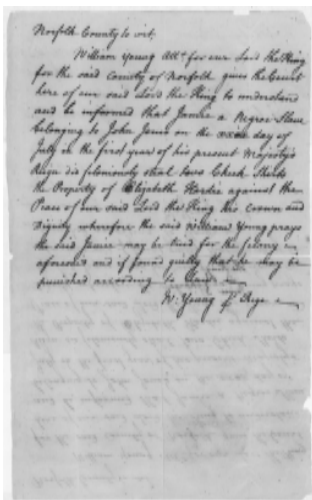 Norfolk County to wit.
William Young Att.y for our Lord the King
for the said County of Norfolk gives the Court
here of our said Lord the King to understand
and be informed that Jamie a Negroe Slave
belonging to John Jamie on the day of
July in the first year of his present Majesty's
Reign did feloniously steal Check Shirts
the Property of Elizabeth Harbie against the
Peace of our said Lord the King his Crown and
Dignity wherefore the said William Young prays
the said Jamie may be tried for the felony
aforesaid and if found guilty that he may be
punished according to Law
W. Young P Rege